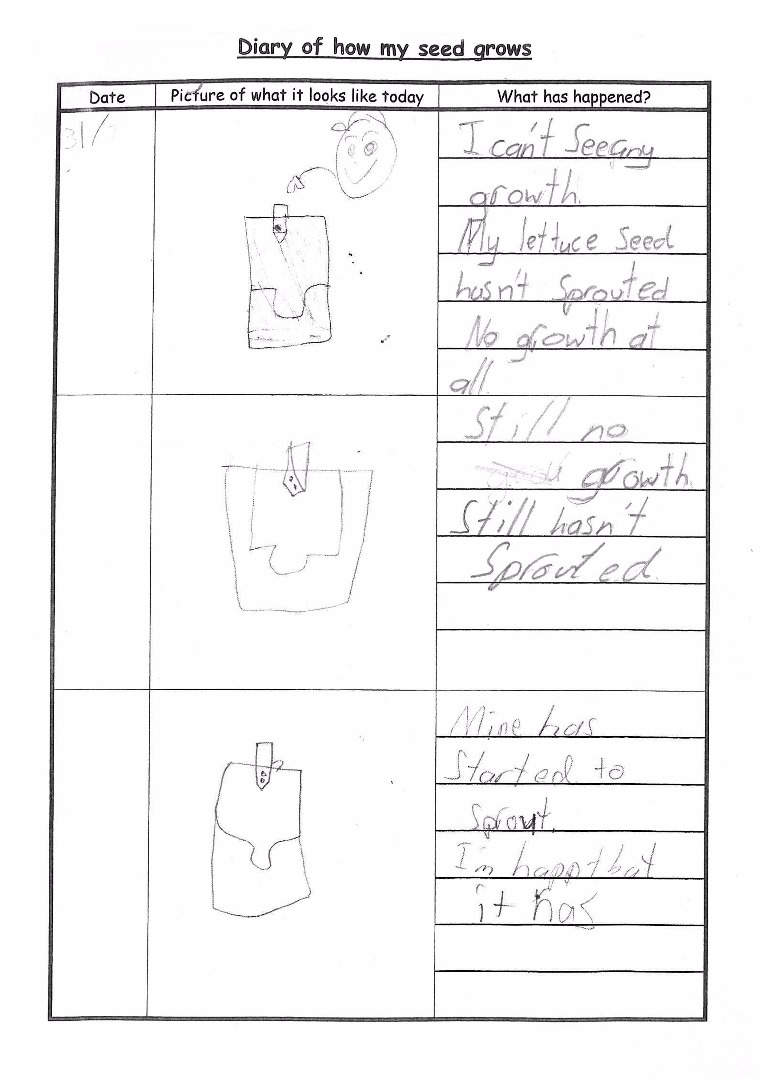 Diary of how my seed grows
Date
Picture of what it looks like today
What has happened?
31/
I can't See any
growth.
My lettuce seed
hasn't Sprouted
No growth at
all
Still no
growth.
Still hasn't
Sprouted.
Mine has
Started to
Sprout.
I'm happy that
it has